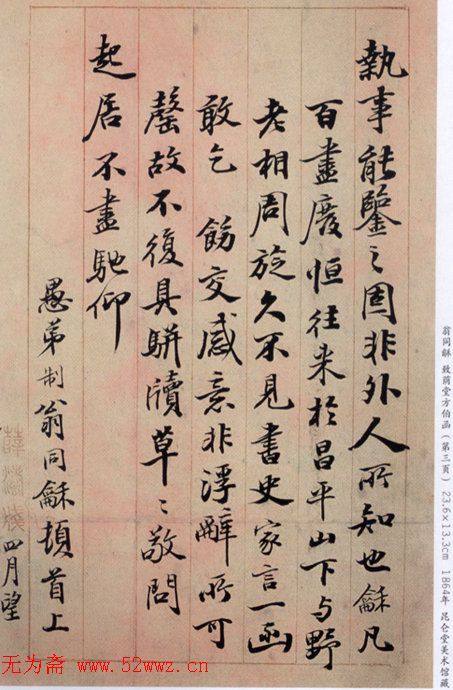 執事能鑒之固非外人所知也龢凡
百盡廢恒往来於昌平山下与野
老相周旋久不見書史家言一函
敢乞 飭交感意非浮辭所可
罄故不復具駢牘草〻敬問
起居不盡馳仰
愚弟制翁同龢頓首上
四月望
翁同龢 致荫堂方伯函（第三页） 23.6×13.3cm 1864年 昆仑堂美术馆藏
无为斋 www.52wwz.cn